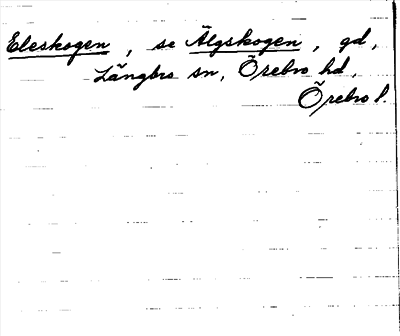 Eleskogen, se Älgskogen, gd,
Längbro sn, Örebro hd,
Örebro l.